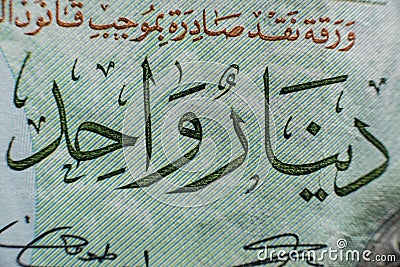 ورقة نقد صادرة بموجب قانون ال
دينارٌ واحد
dreamstime.com